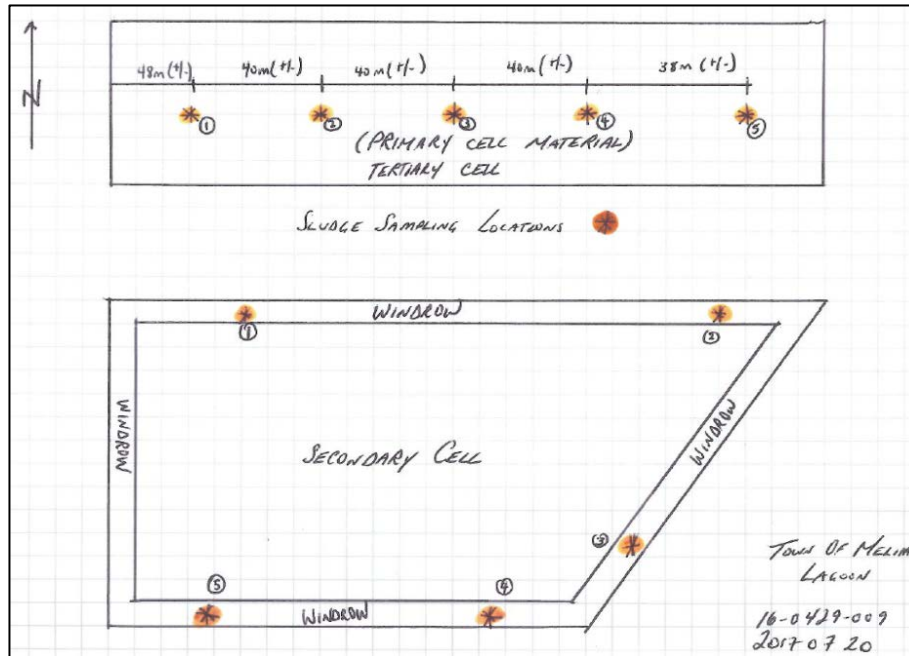 N
48m (+/-) 40m (+/-) 40m (+/-) 40m (+/-) 38m (+/-)
① ② ③ ④ ⑤
(PRIMARY CELL MATERIAL)
TERTIARY CELL
SLUDGE SAMPLING LOCATIONS
WINDROW
① ②
WINDROW
WINDROW
SECONDARY CELL
③
⑤ ④
WINDROW
TOWN OF MELITA
LAGOON
16-0429-009
2017 07 20